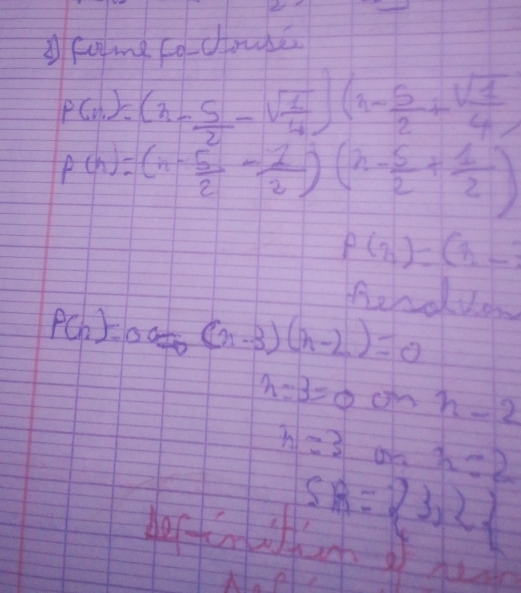 2) forme factorisée
P(x)=(x-5/2-√1/4)(x-5/2+√1/4)
P(x)=(x-5/2-1/2)(x-5/2+1/2)
P(x)=(x-
Resolvon
P(x)=0 ⇔ (x-3)(x-2)=0
x-3=0 ou x-2
x=3 ou x=2
SR={3,2}
Definition et